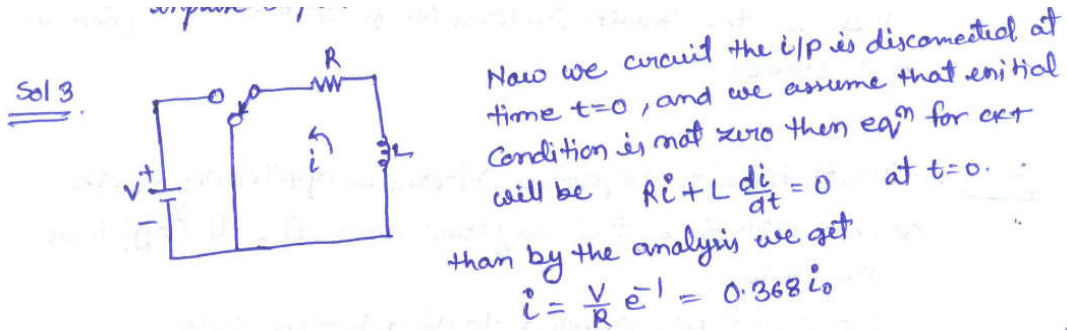 Sol 3
R
i
L
V
+
-
Now we circuit the i/p is disconnected at
time t=0, and we assume that initial
Condition is not zero then eqn for ckt
will be Ri + L di/dt = 0 at t=0.
than by the analysis we get
i = V/R e^-1 = 0.368 i₀